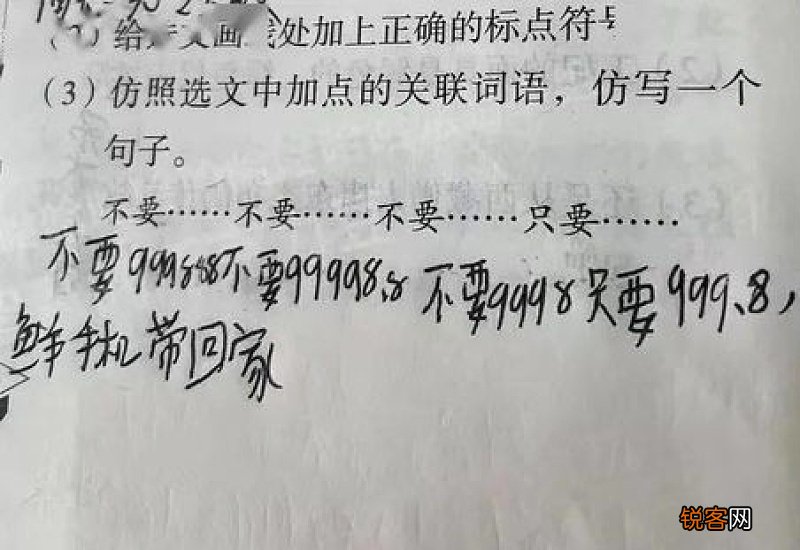 给 文画 处加上正确的标点符号
(3)仿照选文中加点的关联词语，仿写一个
句子。
不要……不要……不要……只要……
不要999888不要99998.8 不要9998只要999.8，
鲜手机带回家
锐客网